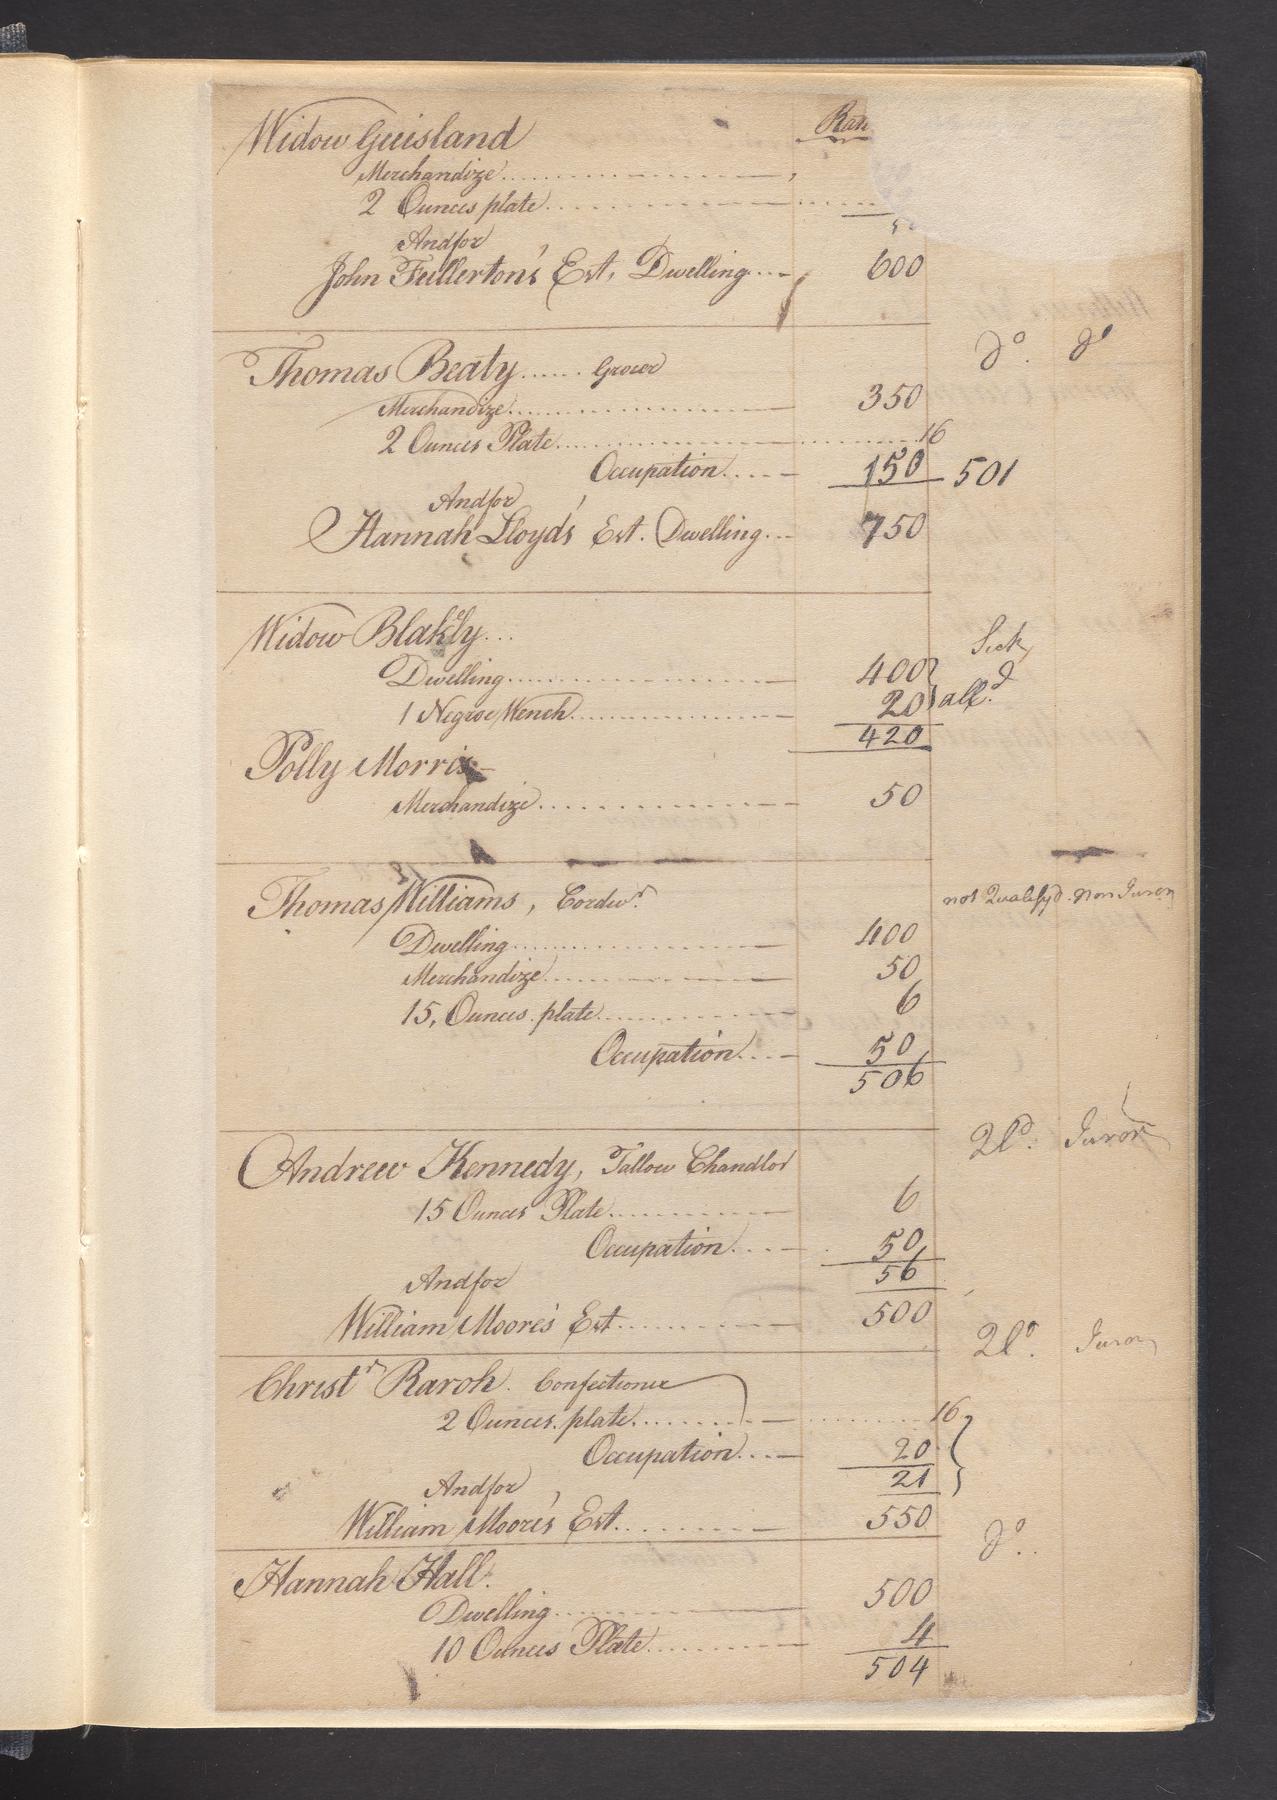 Widow Guisland
Merchandize
2 Ounces plate
Andfor
John Fullerton's Est. Dwelling 600
Thomas Beaty Grocer do. do
Merchandize 350
2 Ounces Plate 16
Occupation 150 501
Andfor
Hannah Lloyd's Est. Dwelling 750
Widow Blakely Sick
Dwelling 400
1 Negroe Wench 20
420
Polly Morris
Merchandize 50
Thomas Williams, Cordwr. not Qualifyd. Non Juror
Dwelling 400
Merchandize 50
15, Ounces plate 6
Occupation 50
506
Andrew Kennedy, Tallow Chandlor Qld. Juror
15 Ounces Plate 6
Occupation 50
56
Andfor
William Moore's Est 500
Christr Raroh. Confectioner Qld. Juror
2 Ounces plate 16
Occupation 20
21
Andfor
William Moore's Est 550
Hannah Hall. do.
Dwelling 500
10 Ounces Plate 4
504